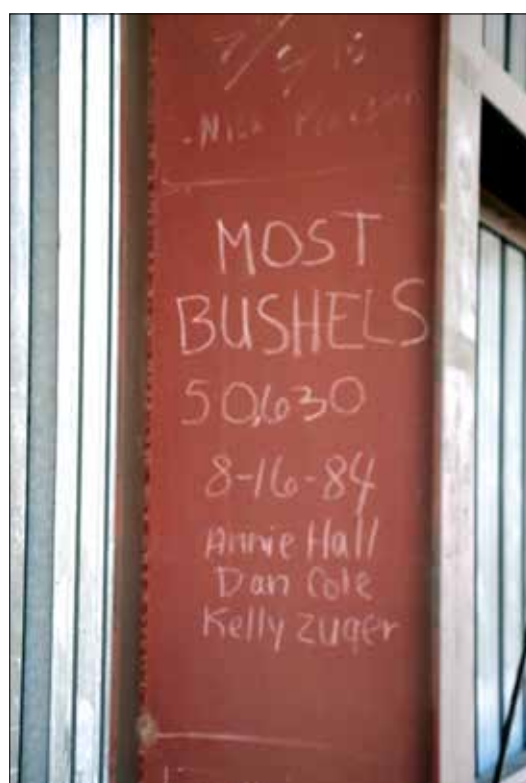 - Nick
MOST
BUSHELS
50,630
8-16-84
Annie Hall
Dan Cole
Kelly Zuger